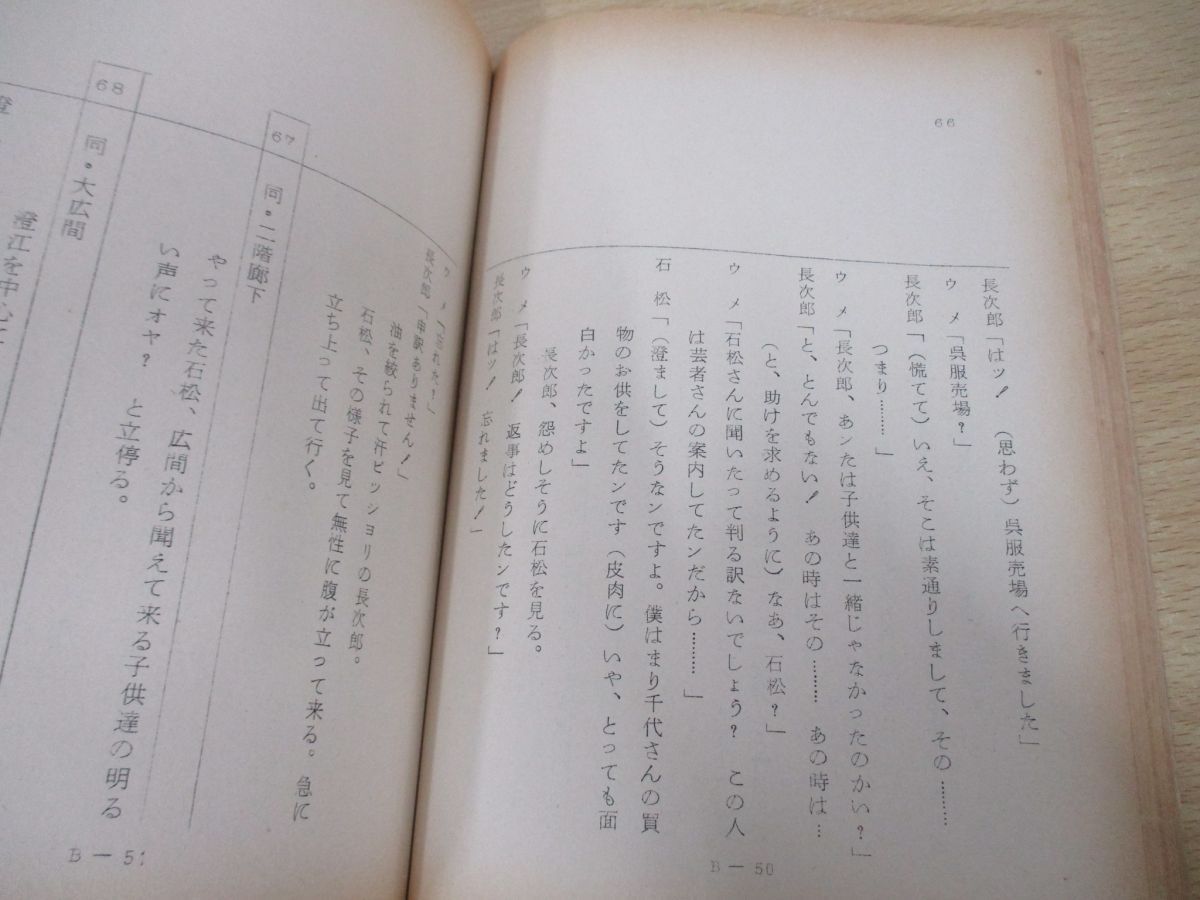 66
長次郎「はッ！　（思わず）呉服売場へ行きました」
ウ　メ「呉服売場？」
長次郎「（慌てて）いえ、そこは素通りしまして、その………
つまり………」
ウ　メ「長次郎、あンたは子供達と一緒じゃなかったのかい？」
長次郎「と、とんでもない！　あの時はその………　あの時は…
（と、助けを求めるように）なあ、石松？」
ウ　メ「石松さんに聞いたって判る訳ないでしょう？　この人
は芸者さんの案内してたンだから………」
石　松「（澄まして）そうなンですよ。僕はまり千代さんの買
物のお供をしてたンです（皮肉に）いや、とっても面
白かったですよ」
長次郎、怨めしそうに石松を見る。
ウ　メ「長次郎！　返事はどうしたンです？」
長次郎「はッ！　忘れました！」
B — 50
ウ　メ「忘れた？」
長次郎「申訳ありません！」
油を絞られて汗ビッショリの長次郎。
石松、その様子を見て無性に腹が立って来る。急に
立ち上って出て行く。
67
同・二階廊下
やって来た石松、広間から聞えて来る子供達の明る
い声にオヤ？　と立停る。
68
同・大広間
澄江を中心に
B — 51